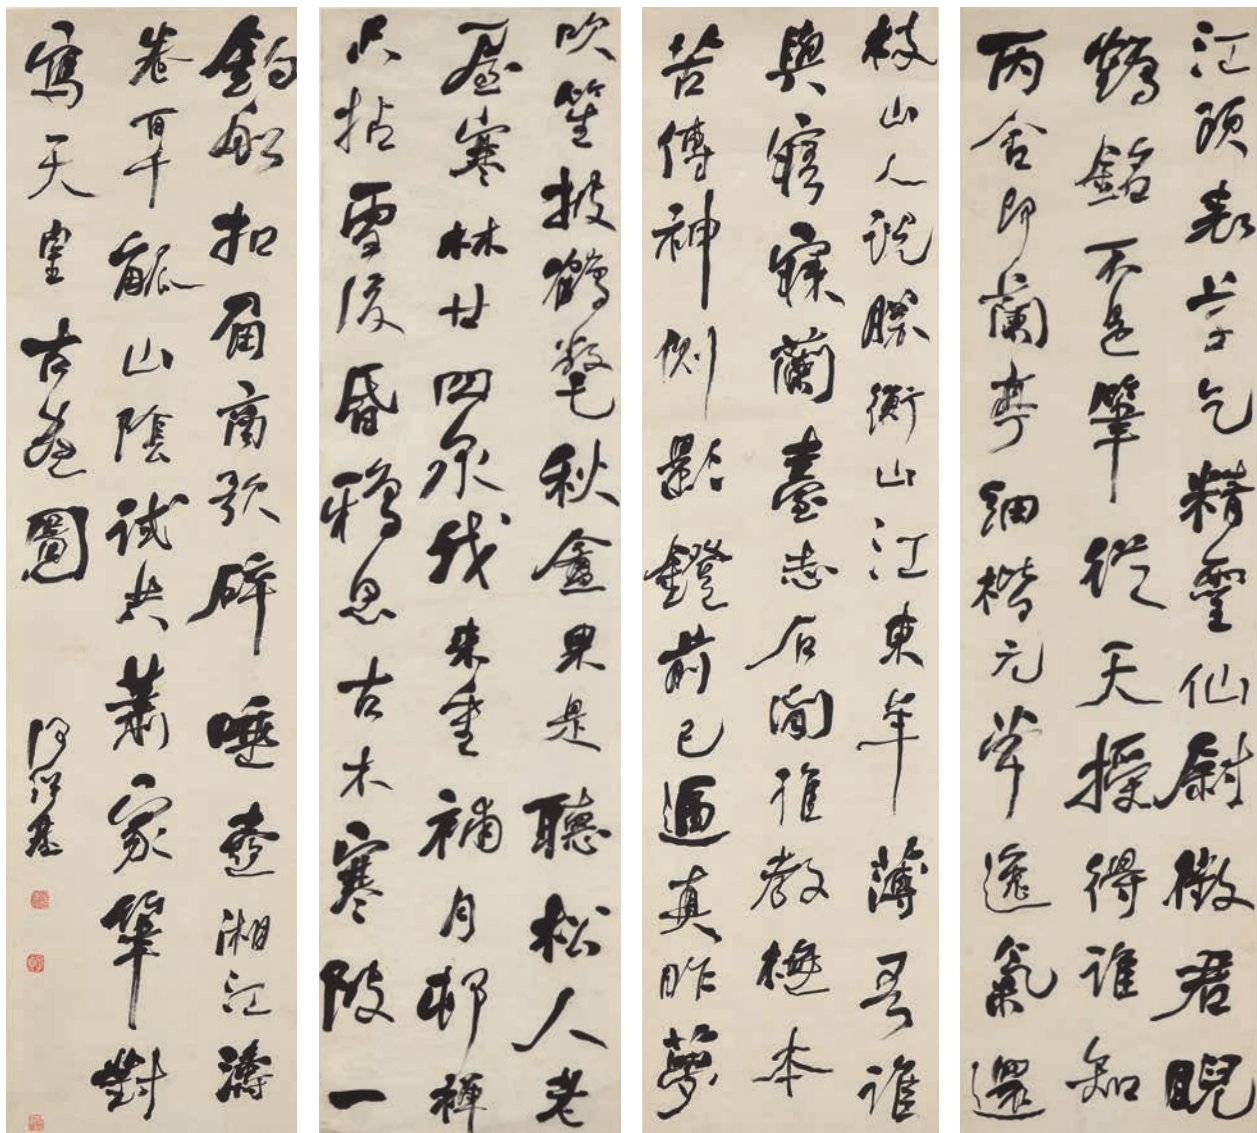 江頭幸乞精靈仙尉徵君睨
鶴銘不是筆從天授得誰知
丙舍即蘭亭細楷元常逸氣還
枝山人說勝衡山江東年薄吾誰
與寤寐蘭臺志石間誰教橅本
苦傳神側影鐙前已逼真昨夢
吹笙披鶴氅秋盦果是聽松人老
屋寒林廿四泉我來重補月邨禪
只拈雪後昏鴉思古木寒陂一
釣船扣角商歌碎唾壺湘江濤
卷百千觚山陰試共蕭家筆對
寫天皇古畫圖
何紹基